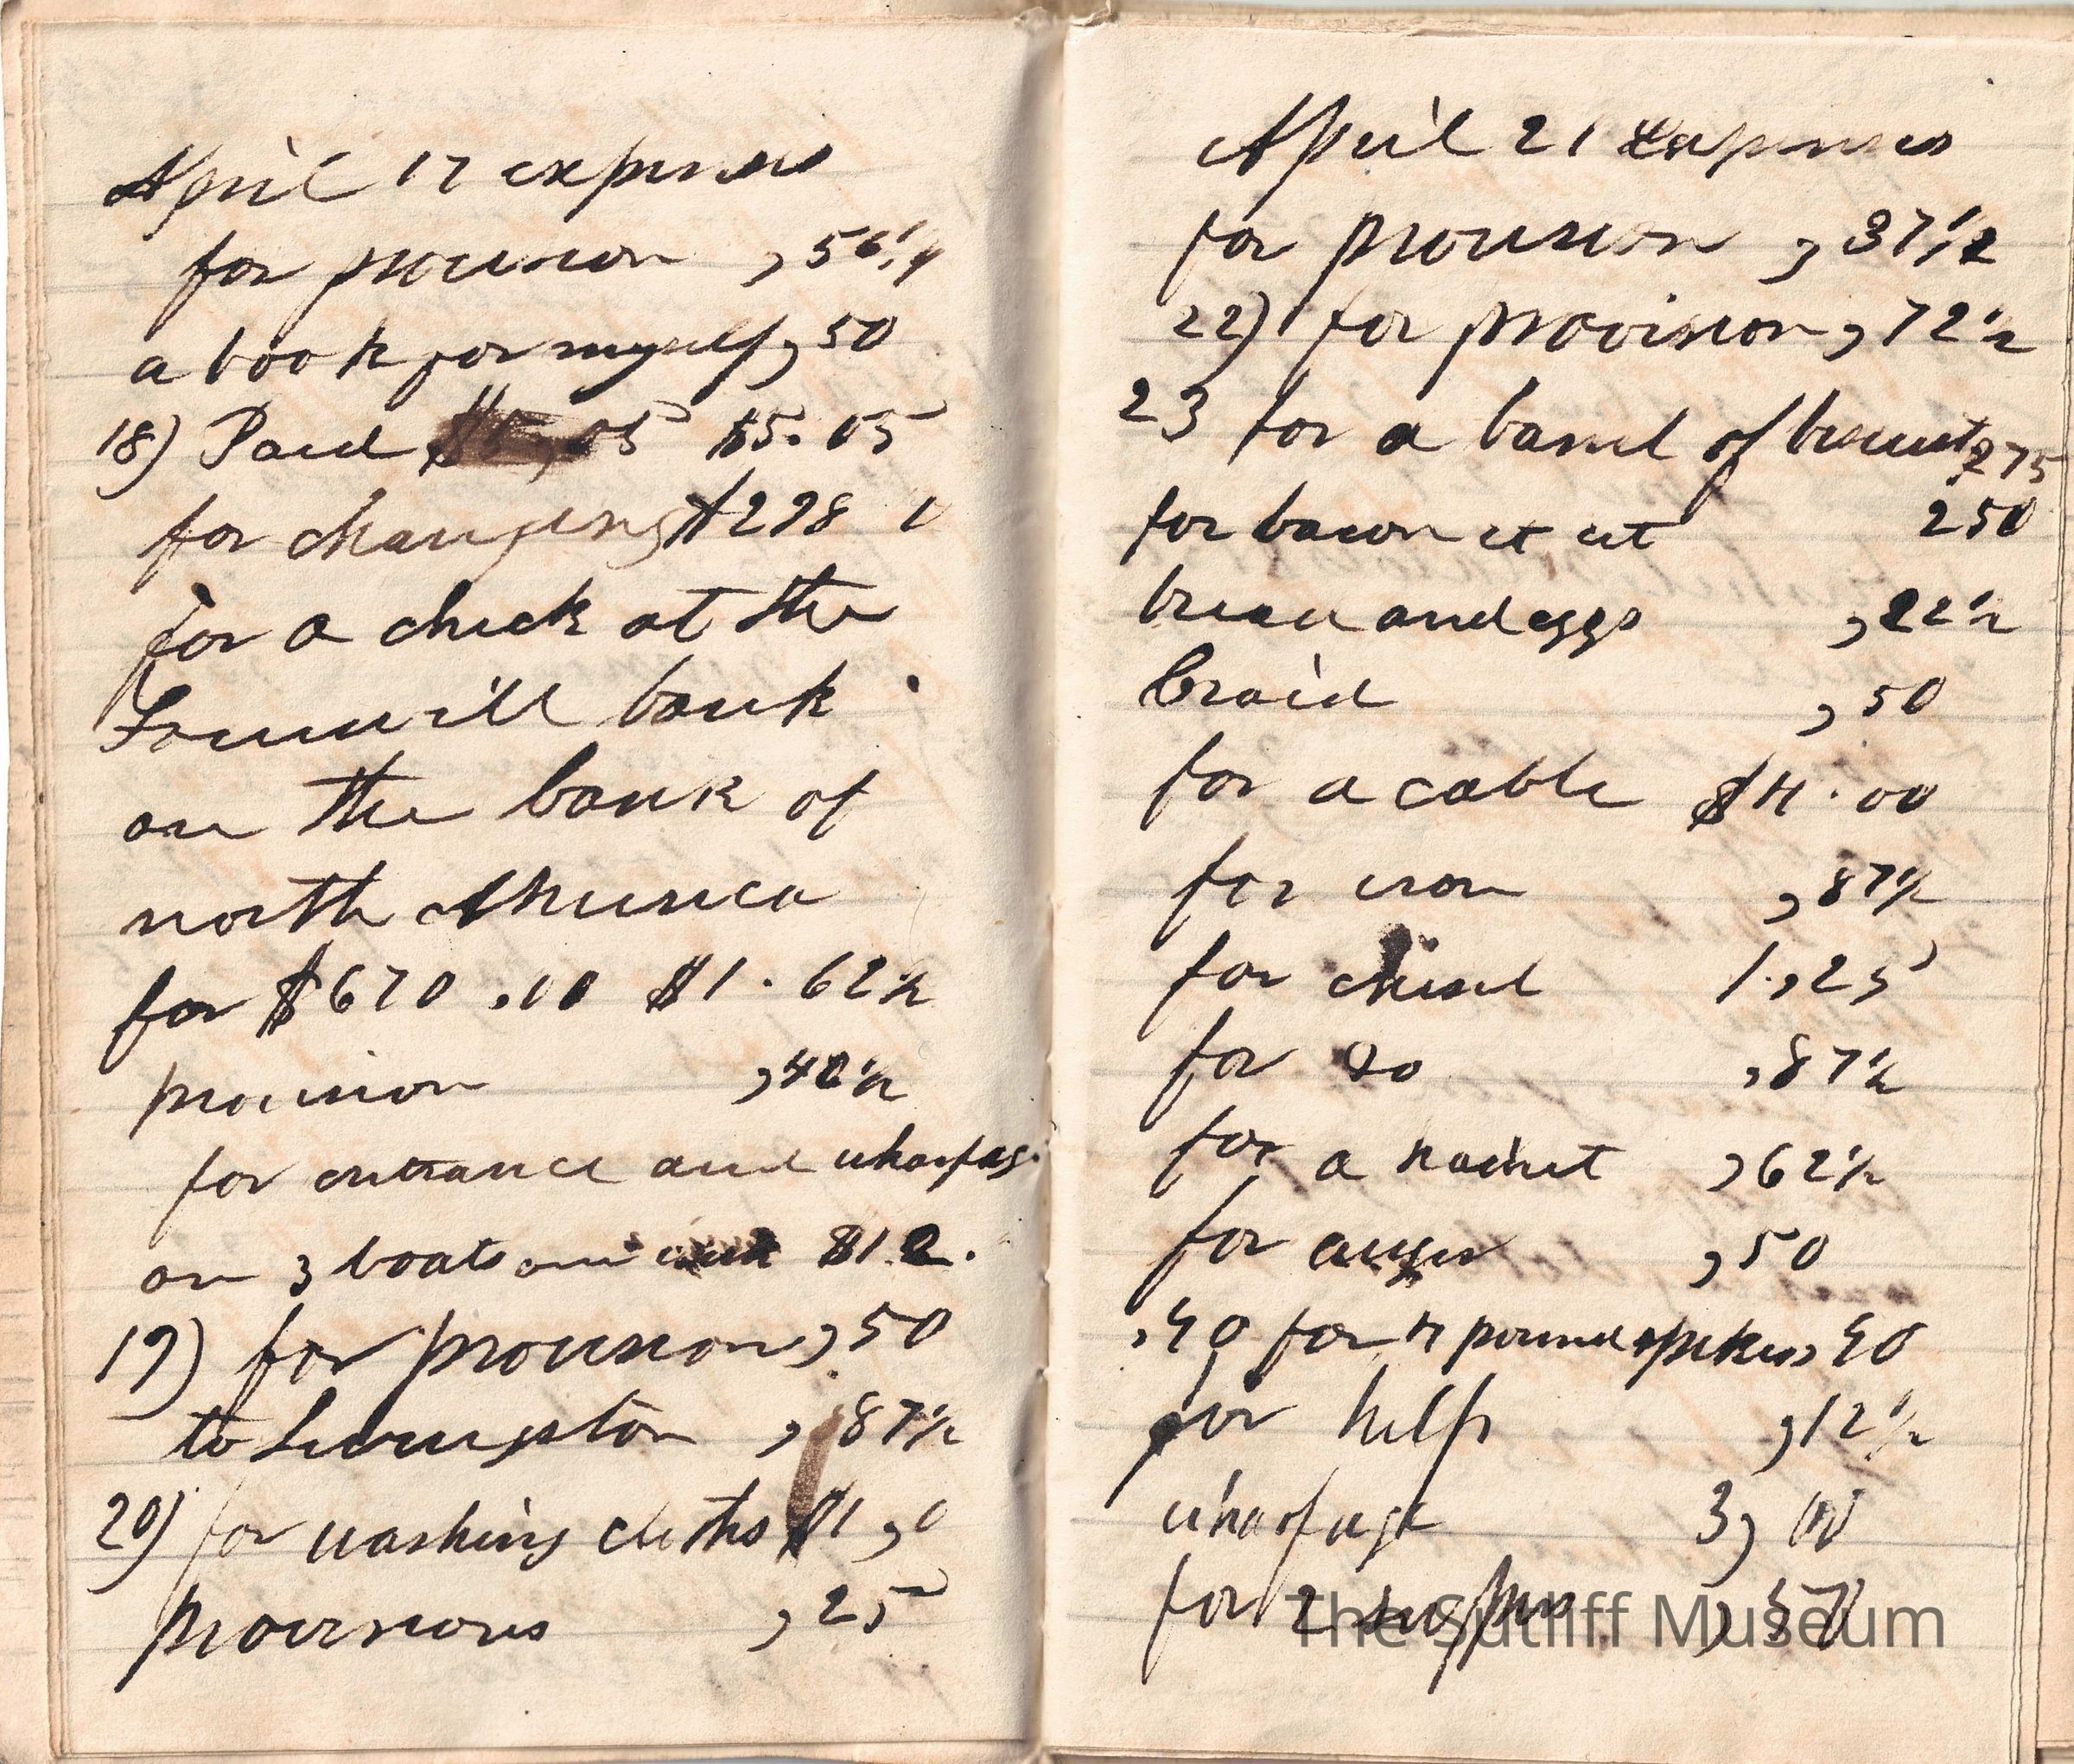 April 17 expenses
for provision ,56¼
a book for myself, 50
18) Paid $5.05
for changing $298
for a check at the
bank
on the bank of
north America
for $670 .00 $1. 62½
provision ,42½
for entrance and wharfag
on 3 boats $12.
19) for provision, 50
to ,87½
20) for washing cloths $1,0
provisions ,25
April 21 Expenses
for provision ,37½
22) for provision, 72½
23 for a barrel of 275
for bacon 250
and eggs ,22½
braid ,50
for a cable $4.00
for iron ,87½
for chisel 1.,25
for Do ,87½
for a hachet ,62½
for auger ,50
,40 for 4 pound spikes, 40
for help ,12½
wharfage 3, 00
for 2 suppers ,50
The Sutliff Museum